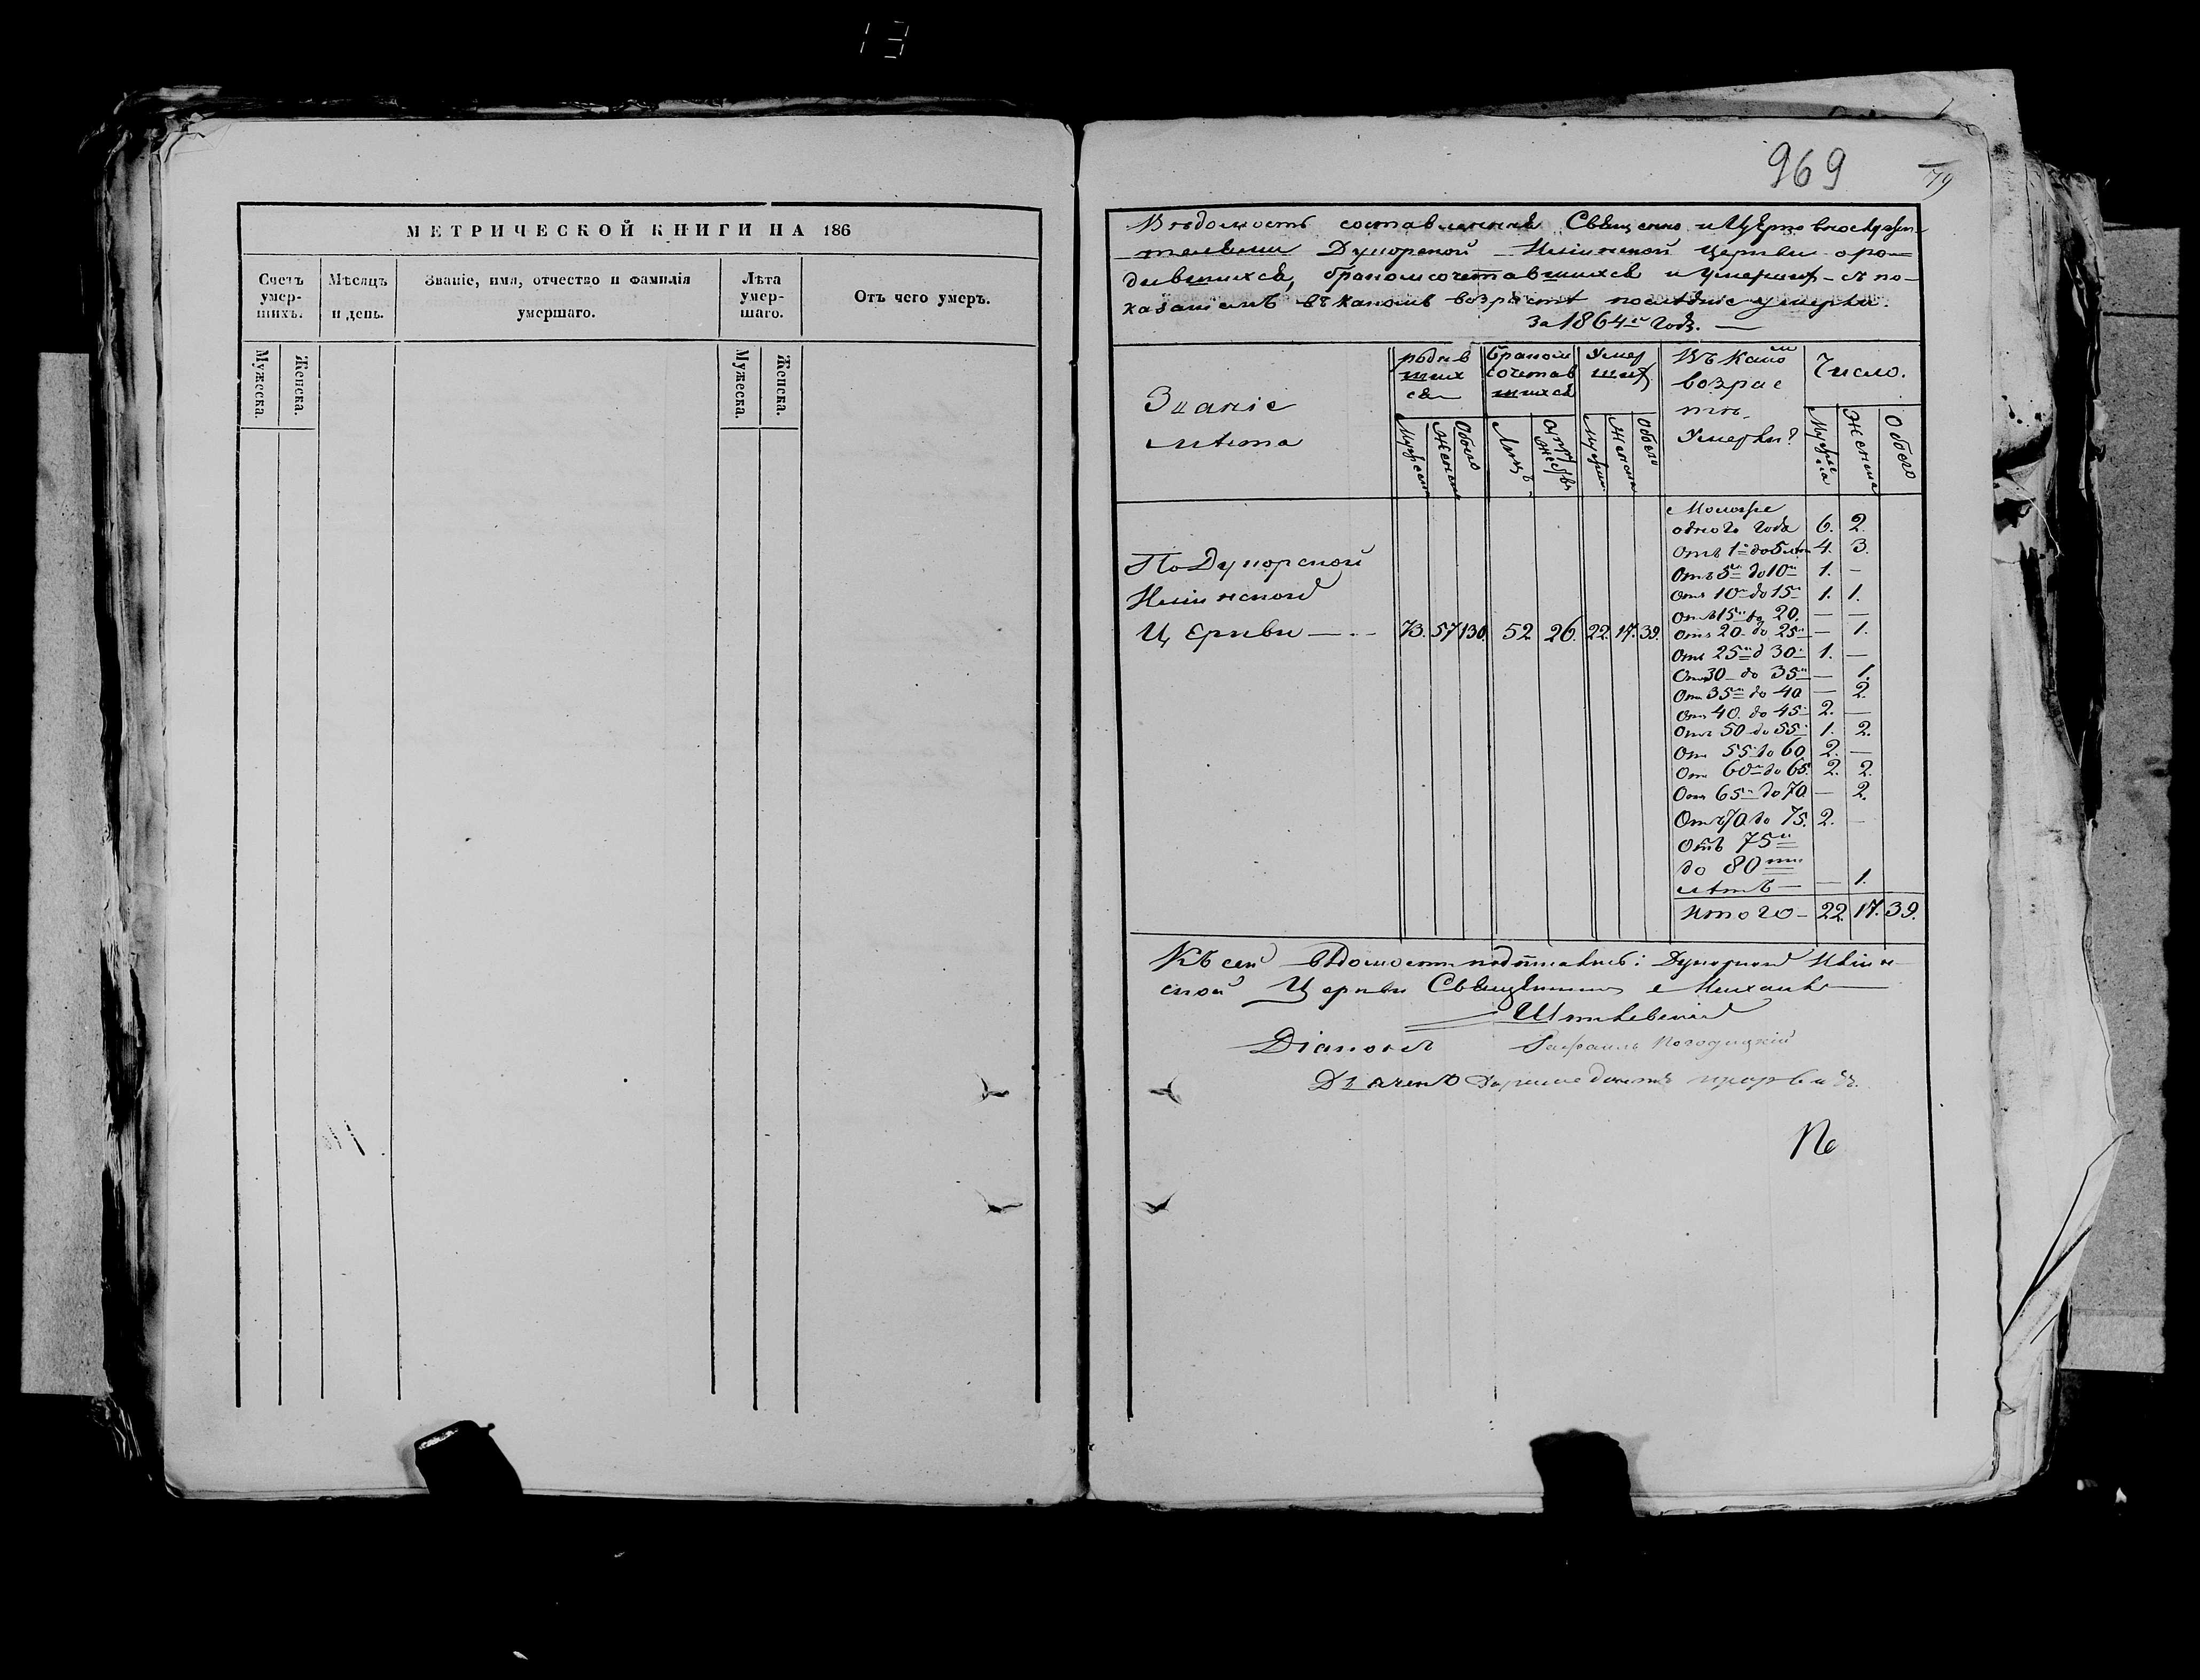 13
МЕТРИЧЕСКОЙ КНИГИ НА 186
Счетъ умер- шихъ.
Мѣсяцъ и день.
Званіе, имя, отчество и фамилія умершаго.
Лѣта умер- шаго.
Отъ чего умеръ.
Мужеска.
Женска.
Мужеска.
Женска.
969
79
Вѣдомость составленная Священно и Церковнослужи-
телями Дунорской Иліинской Церкви о ро-
дившихся, бракомсочетавшихся и умершихъ съ по-
казаніемъ въ какомъ возрастѣ послѣдніе умерли.
За 1864й Годъ.
Званіе мѣста
родив ших ся
Бракомъ сочетав шихся
Умер шихъ
Въ Какомъ возрас тѣ Умерли?
Число.
Мужеск
Женск
Обоего
Лицъ
Супружествъ
Мужеск.
Женска
Обоего
Мужеска
Женска
Обоего
По Дунорской
Иліинской
Церкви — 73. 57 130. 52 26. 22. 17. 39.
Моложе
одного года 6. 2.
Отъ 1 до 5 лѣт 4. 3.
Отъ 5 до 10 1. —
Отъ 10 до 15 1. 1.
Отъ 15 до 20. — —
Отъ 20 до 25 — 1.
Отъ 25 д 30 1. —
От 30 до 35 — 1.
От 35 до 40 — 2.
От 40. до 45 2. —
Отъ 50 до 55 1. 2.
От 55 до 60 2. —
От 60 до 65. 2. 2.
От 65 до 70 — 2.
Отъ 70 до 75. 2. —
Отъ 75
до 80
лѣтъ — — 1.
Итого — 22. 17. 39.
Къ сей вѣдомости подписались: Дунорской Иліин
ской Церкви Священникъ Михаилъ
Діаконъ Рафаилъ
Дьячекъ